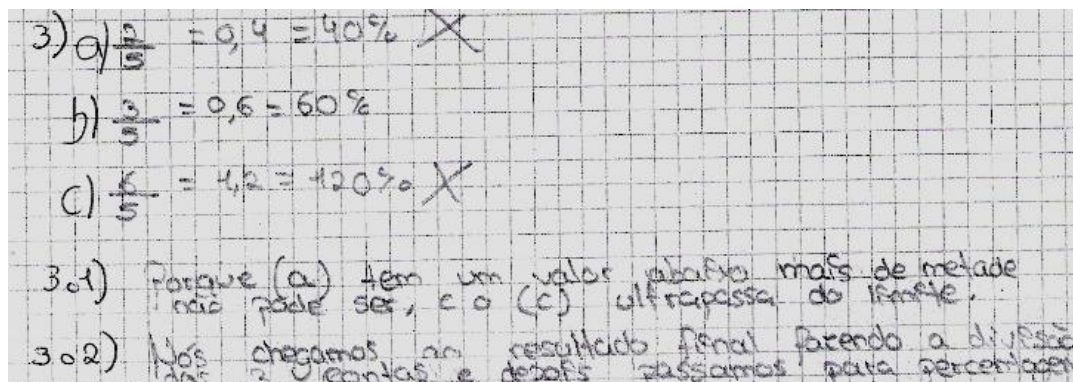 3) a) 2/5 = 0,4 = 40% X
b) 3/5 = 0,6 = 60%
c) 6/5 = 1,2 = 120% X
3.1) Porque (a) tem um valor abaixo mais de metade
não pode ser, e o (c) ultrapassa do limite.
3.2) Nós chegamos ao resultado final fazendo a divisão
das contas e depois passamos para percentagem